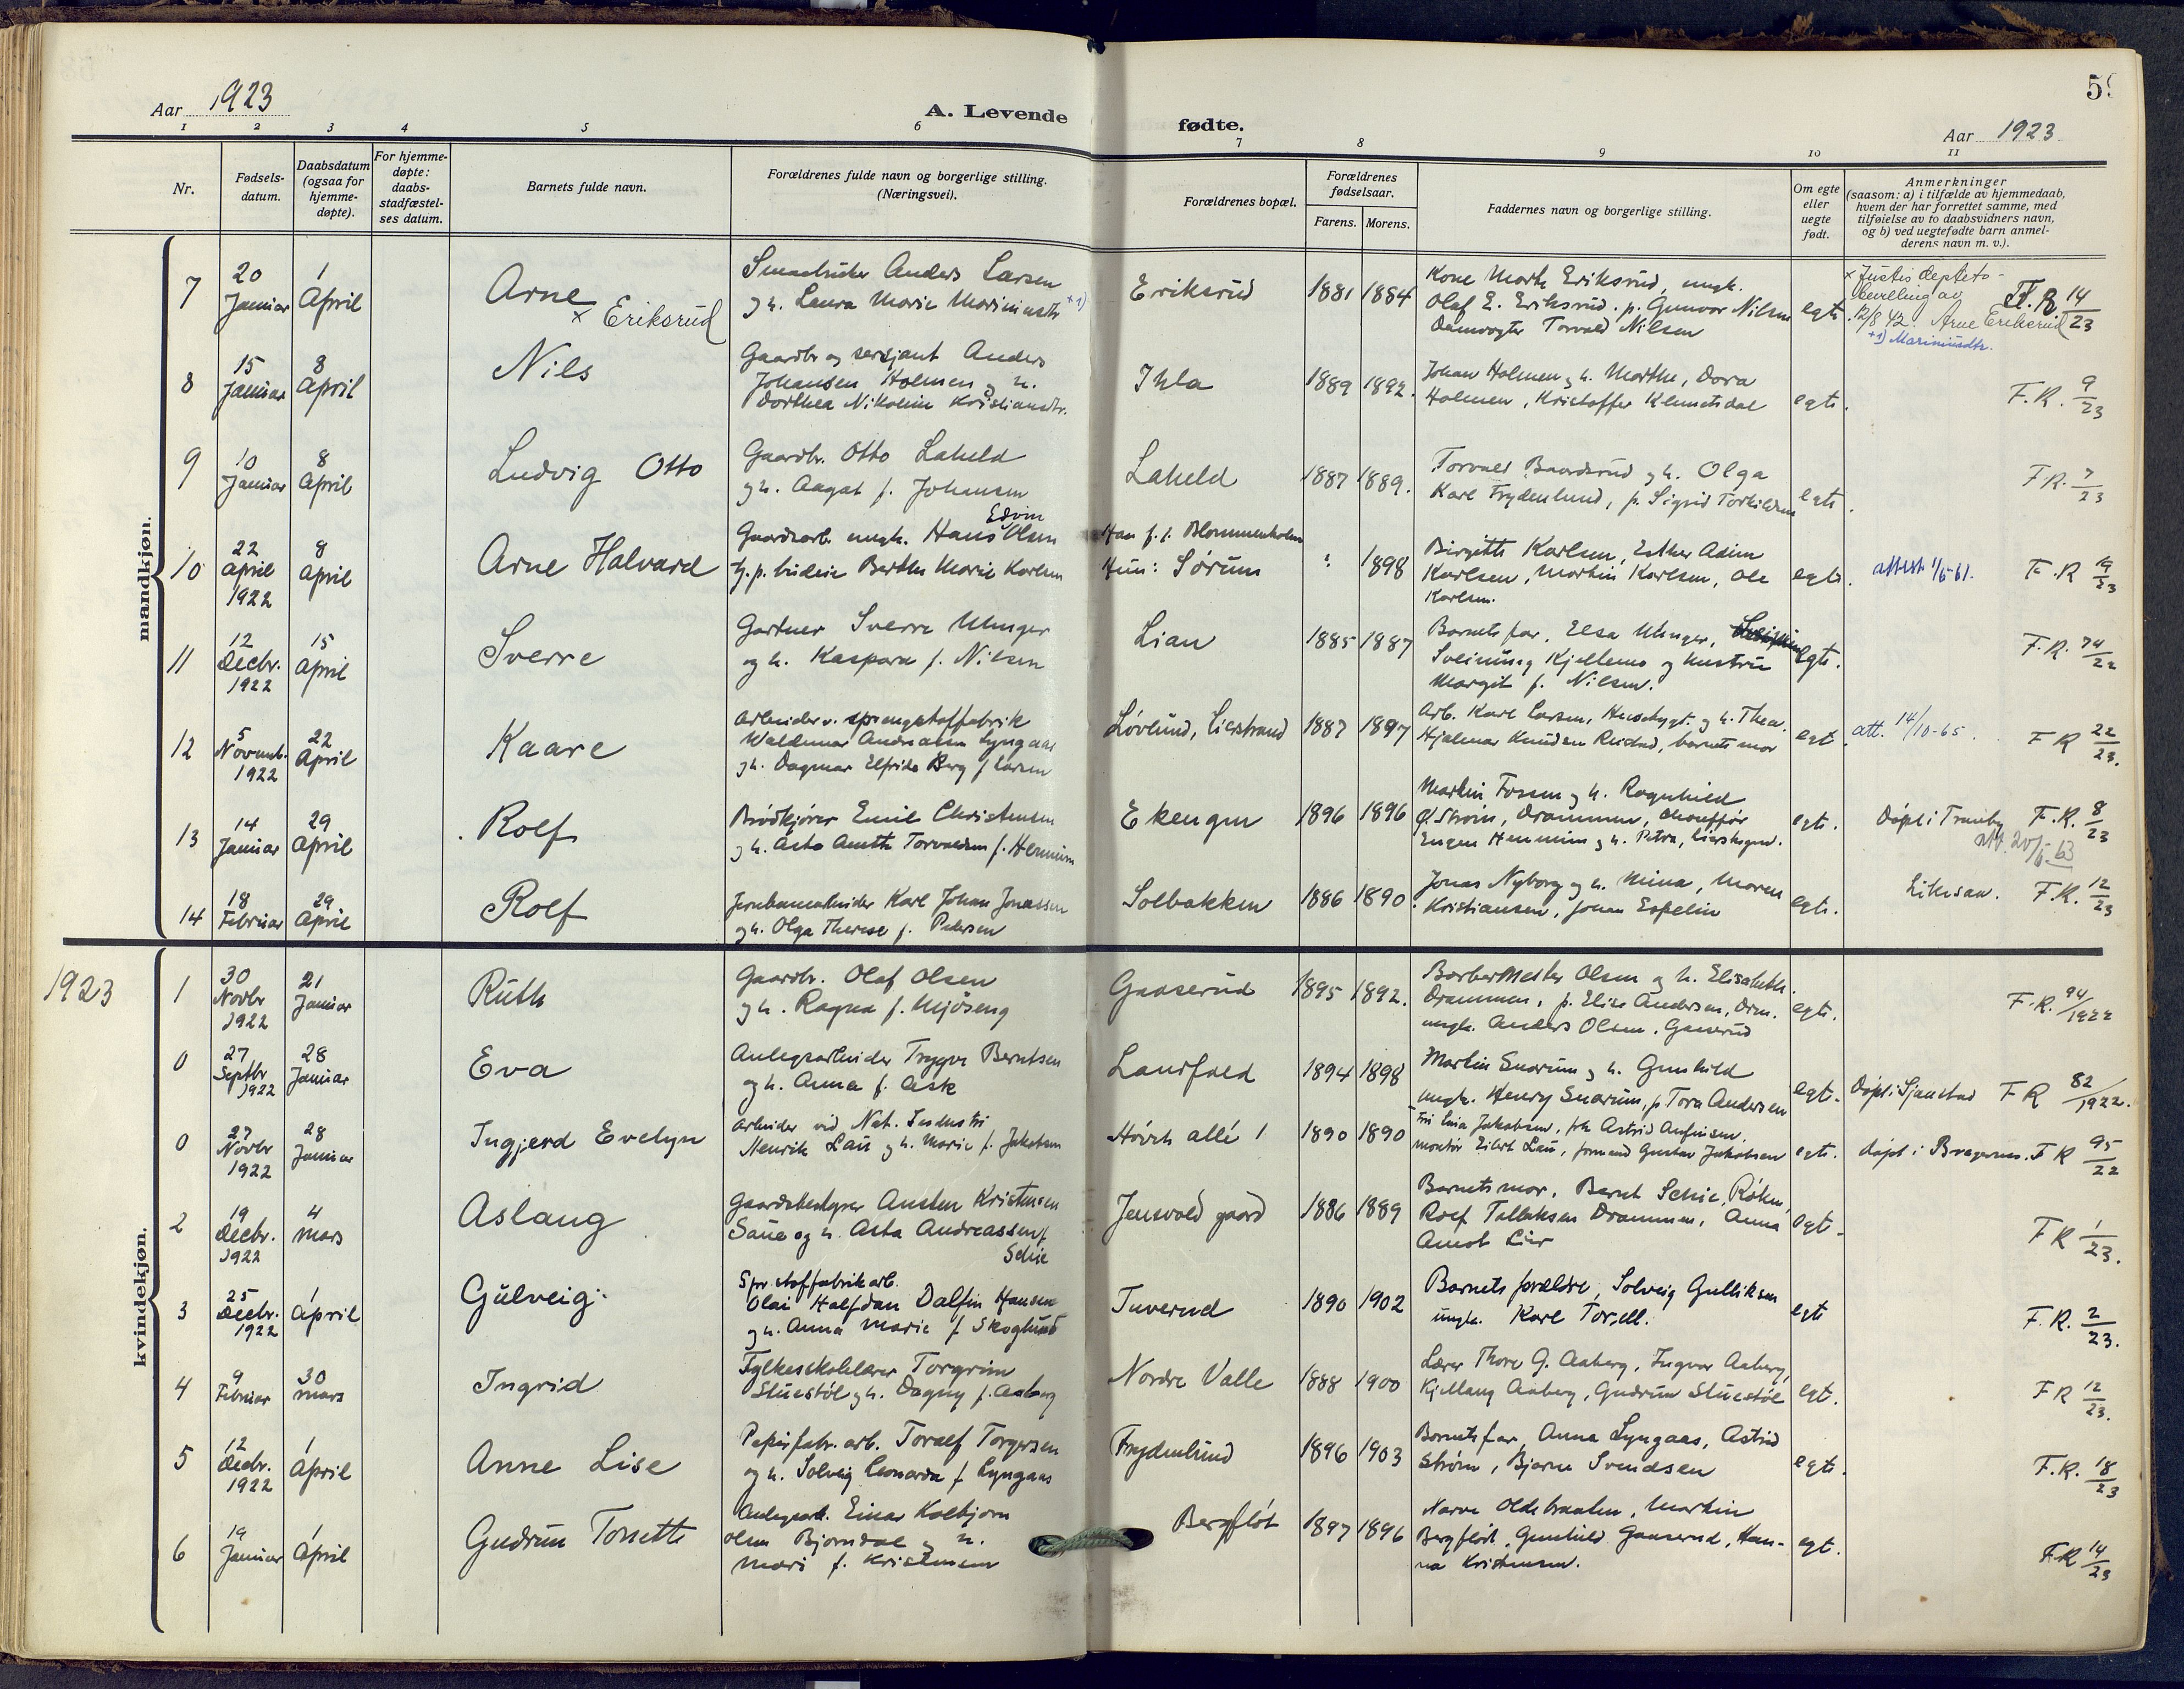 59
Aar 1923
A. Levende fødte.
Aar 1923
1 2 3 4 5 6 7 8 9 10 11
Nr.
Fødsels-
datum.
Daabsdatum
(ogsaa for
hjemme-
døpte).
For hjemme-
døpte:
daabs-
stadfæstel-
ses datum.
Barnets fulde navn.
Forældrenes fulde navn og borgerlige stilling.
(Næringsvei).
Forældrenes bopæl.
Forældrenes
fødselsaar.
Farens. Morens.
Faddernes navn og borgerlige stilling.
Om egte
eller
uegte
født.
Anmerkninger
(saasom: a) i tilfælde av hjemmedaab,
hvem der har forrettet samme, med
tilføielse av to daabsvidners navn,
og b) ved uegtefødte barn anmel-
derens navn m. v.).
mandkjøn.
7
20 Januar
1 April
Arne
x Eriksrud
Anders Larsen
og h. Laura Marie +1)
Eriksrud
1881 1884
Kone Marth Eriksrud, ungk.
Olaf E. Eriksrud. p. Gunvor Nilsen
Torvald Nilsen
egte
x Justis deptets-
bevilling av
12/8 42. Arne Eriksrud
+1) Mariniusdtr.
F. R. 14/23
8
15 Januar
8 April
Nils
Gaardbr og sersjant Anders
Johansen Holmen og h.
Dorthea Nikoline Kristiansdtr.
Ihla
1889 1892.
Johan Holmen og h. Marthe, Dora
Holmen, Kristoffer Klemetsdal
egte.
F. R. 9/23
9
10 Januar
8 April
Ludvig Otto
Gaardbr. Otto Laheld
og h. Aagot f. Johansen
Laheld
1887 1889.
Torvald Baardsrud og h. Olga
Karl Frydenlund, p. Sigrid Torkildsen
egte.
F R. 7/23
10
22 April 1922
8 April
Arne Halvard
Gaardsarb. ungk. Hans Edvin Olsen
og p. budeie Berthe Marie Karlsen
Han f. i. Blommenholm
Hun: Sørum
: 1898
Birgitte Karlsen, Esther
Karlsen, Martin Karlsen, Ole
Karlsen.
egte.
attest 1/6-61.
F. R 19/23
11
12 Decbr. 1922
15 April
Sverre
Gartner Sverre Unger
og h. Kaspara f. Nilsen
Lian
1885 1887
Barnets far, Elsa Unger,
Kjellemo og hustru
Margit f. Nilsen.
egte.
F. R. 74/22
12
5 Novemb. 1922
22 April
Kaare
Arbeider v. sprengstoffabrik
Waldemar Andreassen Lyngaas
og h. Dagmar Elfrida Berg f Larsen
Løvlund, Lierstrand
1887 1897
Arb. Karl Larsen, og h. Thea.
Hjalmar Knudsen barnets mor
egte.
att. 14/10-65.
F R 22/23.
13
14 Januar
29 April
Rolf
Brødkjører Emil Christensen
og h. Asta Torvaldsen f. Henning
Ekengen
1896 1896
Martin Fossen og h. Ragnhild
Ø. Strøm, Drammen, chauffør
Eugen Henning og h. Petra, Lierskogen.
egte.
Døpt i Tranby
F. R. 8/23
att. 20/5 63
14
18 Februar
29 April
Rolf
Jernbanearbeider Karl Johan Jonassen
og h. Olga Therese f. Pedersen
Solbakken
1886 1890.
Jonas Nyborg og h. Mina, Maren
Kristiansen, Johan Espelin
egte.
F. R. 12/23
1923
kvindekjøn.
1
30 Novbr 1922
21 Januar
Ruth
Gaardbr. Olaf Olsen
og h. Ragna f. Mjøseng
Gaaserud
1895 1892.
Barbermester Olsen og h. Elisabeth.
Drammen, p. Elise Andersen, Drm.
ungk. Anders Olsen, Gaaserud
egte.
F. R. 94/1922
0
27 Septbr 1922
28 Januar
Eva
Anlegsarbeider Trygve Berntsen
og h. Anna f. Ask
Landfald
1894 1898
Martin Snarum og h. Gunhild
ungk. Henry Snarum, p Tora Andersen
egte.
Døpt i Sjaastad
F R 82/1922.
0
27 Novbr 1922
28 Januar
Ingjerd Evelyn
Arbeider ved Nat. Industri
Henrik Lau og h. Marie f. Jakobsen
allé 1
1890 1890
Lina Jakobsen, frk Astrid
montør Eilert Lau, formand Gustav Jakobsen
egte.
døpt i Bragernes.
F R 95/22
2
19 Decbr. 1922
4 mars
Aslaug
Gaardsbestyrer Austen Kristensen
Saue og h. Asta Andreassen f
Schie
Jensvold gaard
1886 1889
Barnets mor, Bernt Schie, Røken,
Rolf Tollefsen Drammen, Anna
Amot Lier
egte.
F R 1/23.
3
25 Decbr. 1922
1 April
Gulveig
Spr.stoffabrikarb.
Olai Halfdan Dalfin Hansen
og h. Anna Marie f Skoglund
Tuverud
1890 1902
Barnets forældre, Solveig Gulliksen
ungk. Karl Torsell.
egte
F. R. 2/23.
4
9 Februar
30 mars
Ingrid
Fylkesskolelærer Torgrim
Stuestøl og h. Dagny f. Aaberg
Nordre Valle
1888 1900
Lærer Thore G. Aaberg, Ingvar Aaberg,
Kjellaug Aaberg, Gudrun Stuestøl
egte.
F R 12/23.
5
12 Decbr. 1922
1 April
Anne Lise
Papirfabr. arb. Toralf Torgersen
og h. Solveig Leonarda f Lyngaas
Frydenlund
1896 1903
Barnets far, Anna Lyngaas, Astrid
Strøm, Bjarne Svendsen
egte.
F. R. 18/23
6
19 Januar
1 April
Gudrun Torseth
Anlegsarb. Einar Kolbjørn
Olsen Bjørndal og h.
Mari f. Kristensen
Bergfløt
1897 1896
Narve Oldebraaten, Martin
Bergfløt, Gunhild Gaaserud, Han-
na Kristensen.
egt.
F. R 14/23